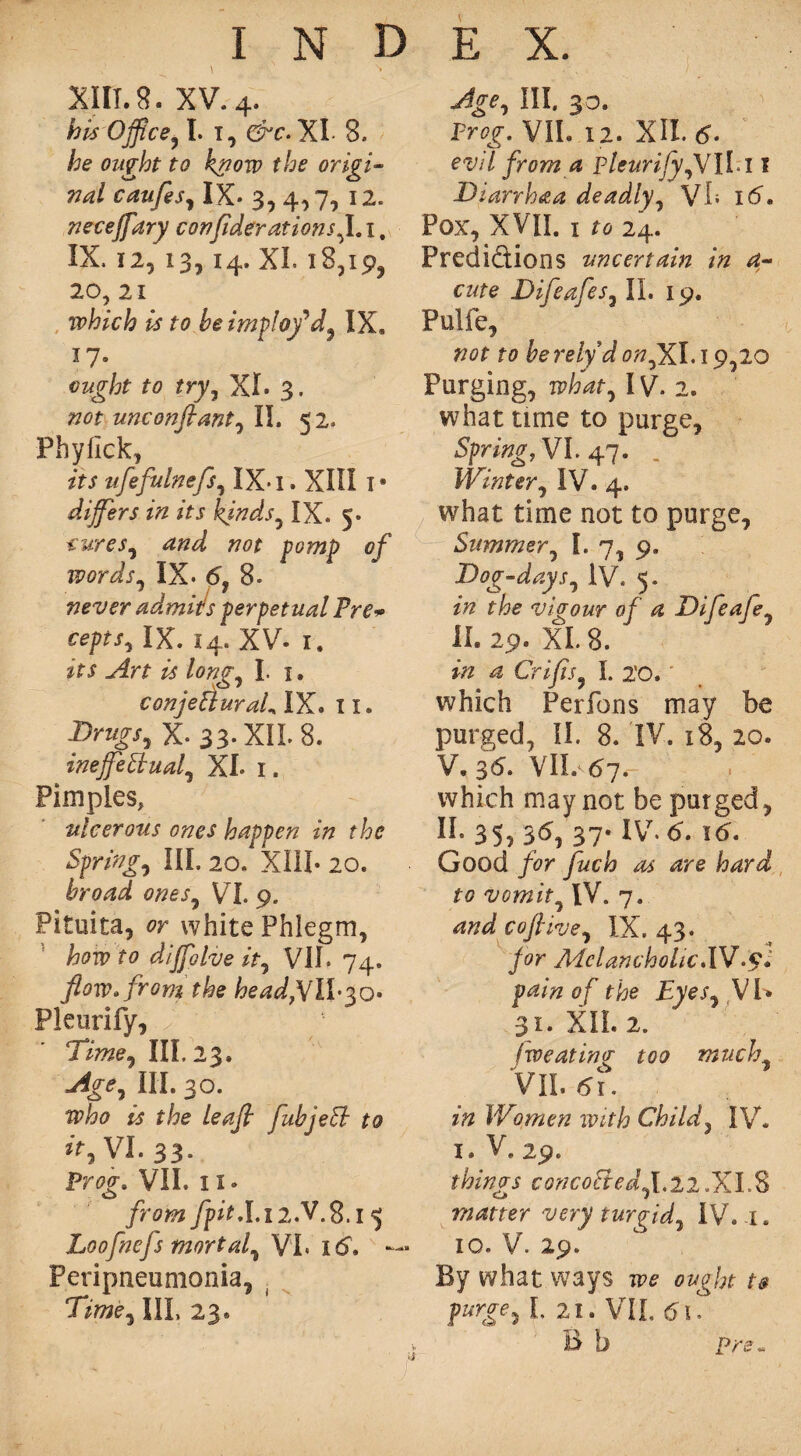 INDEX.
XIII. 8. XV. 4.
his Office, I. 1, &c. XI. 8.
he ought to know the origi-
nal cauſes, IX. 3, 4, 7, 12.
neceſſary conſiderations, I. 1.
IX. 12, 13, 14. XI. 18, 19,
20, 21
which is to be imploy'd, IX.
17.
ought to try, XI. 3.
not unconſtant, II. 52.
Phyſick,
its uſefulneſs, IX. 1. XIII 1.
differs in its kinds, IX. 5.
cures, and not pomp of
words, IX. 6, 8.
never admits perpetual Pre-
cepts, IX. 14. XV. 1.
its Art is long, I. 1.
conjectural, IX. 11.
Drugs, X. 33. XII. 8.
ineffectual, XI. 1.
Pimples,
ulcerous ones happen in the
Spring, III. 20. XIII. 20.
broad ones, VI. 9.
Pituita, or white Phlegm,
how to diſſolve it, VII. 74.
flow. from the head, VII. 30.
Pleuriſy,
Time, III. 23.
Age, III. 30.
who is the leaſt ſubject to
it, VI. 33.
Prog. VII. 11.
from ſpit. I. 12. V. 8. 15
Looſneſs mortal, VI. 16.
Peripneumonia,
Time, III. 23.
Age, III. 30.
Prog. VII. 12. XII. 6.
evil from a Pleuriſy, VII. 11
Diarrhæa deadly, VI. 16.
Pox, XVII. 1 to 24.
Predictions uncertain in a-
cute Diſeaſes, II. 19.
Pulſe,
not to be rely'd on, XI. 19, 20
Purging, what, IV. 2.
what time to purge,
Spring, VI. 47.
Winter, IV. 4.
what time not to purge,
Summer, I. 7, 9.
Dog-days, IV. 5.
in the vigour of a Diſeaſe,
II. 29. XI. 8.
in a Criſis, I. 20.
which Perſons may be
purged, II. 8. IV. 18, 20.
V. 36. VII. 67.
which may not be purged,
II. 35, 36, 37. IV. 6. 16.
Good for ſuch as are hard
to vomit, IV. 7.
and coſtive, IX. 43.
for Melancholic. IV. 9.
pain of the Eyes, VI.
31. XII. 2.
ſweating too much,
VII. 61.
in Women with Child, IV.
1. V. 29.
things concocted, I. 22. XI. 8
matter very turgid, IV. 1.
10. V. 29.
By what ways we ought to
purge, I. 21. VII. 61.
B b
Pre-